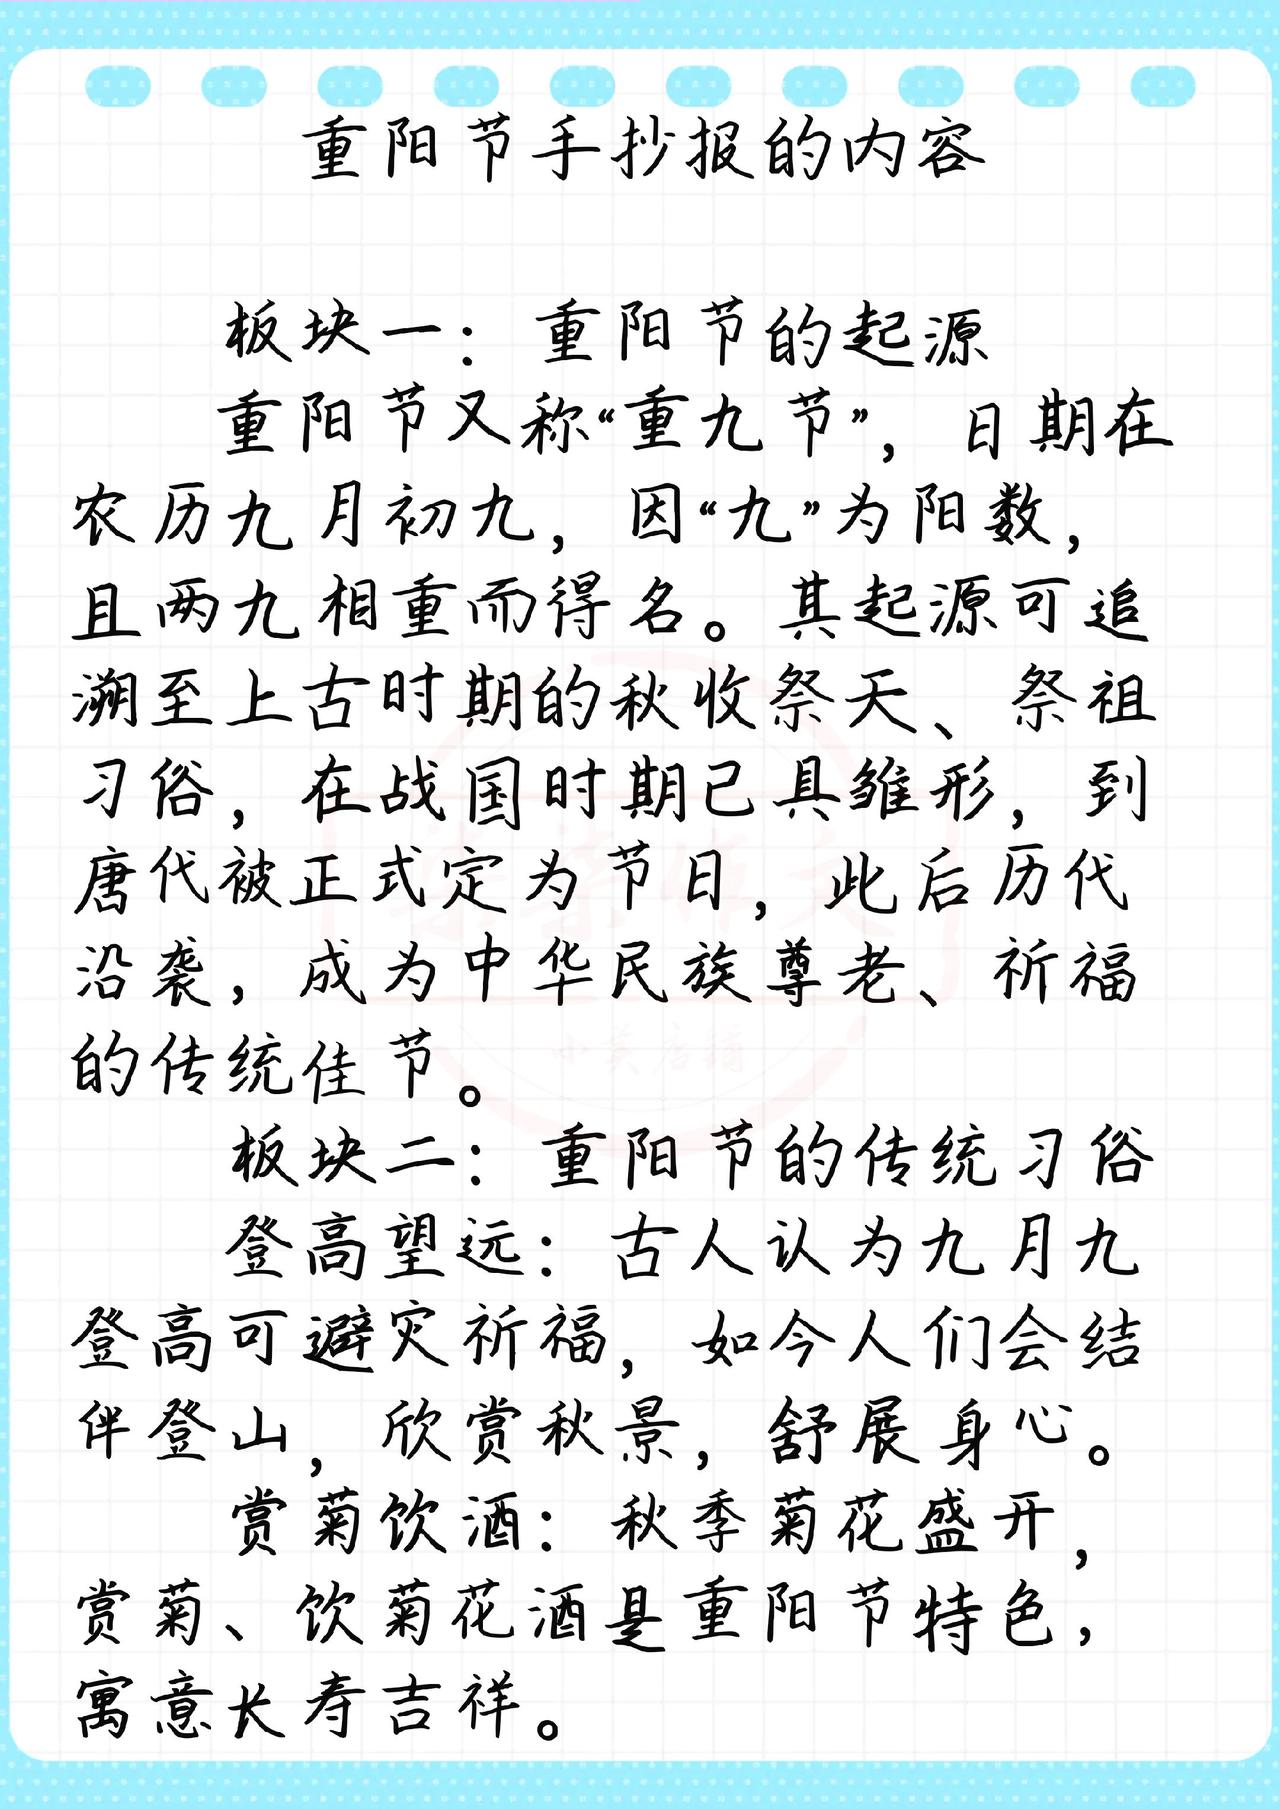 重阳节手抄报的内容
板块一：重阳节的起源
重阳节又称“重九节”，日期在
农历九月初九，因“九”为阳数，
且两九相重而得名。其起源可追
溯至上古时期的秋收祭天、祭祖
习俗，在战国时期已具雏形，到
唐代被正式定为节日，此后历代
沿袭，成为中华民族尊老、祈福
的传统佳节。
板块二：重阳节的传统习俗
登高望远：古人认为九月九
登高可避灾祈福，如今人们会结
伴登山，欣赏秋景，舒展身心。
赏菊饮酒：秋季菊花盛开，
赏菊、饮菊花酒是重阳节特色，
寓意长寿吉祥。